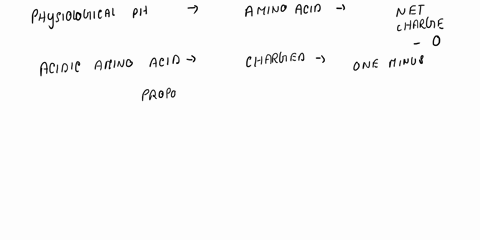 PHYSIOLOGICAL PH → AMINO ACID → NET CHARGE - 0
ACIDIC AMINO ACID → CHARGED → ONE MINUS
PROPO